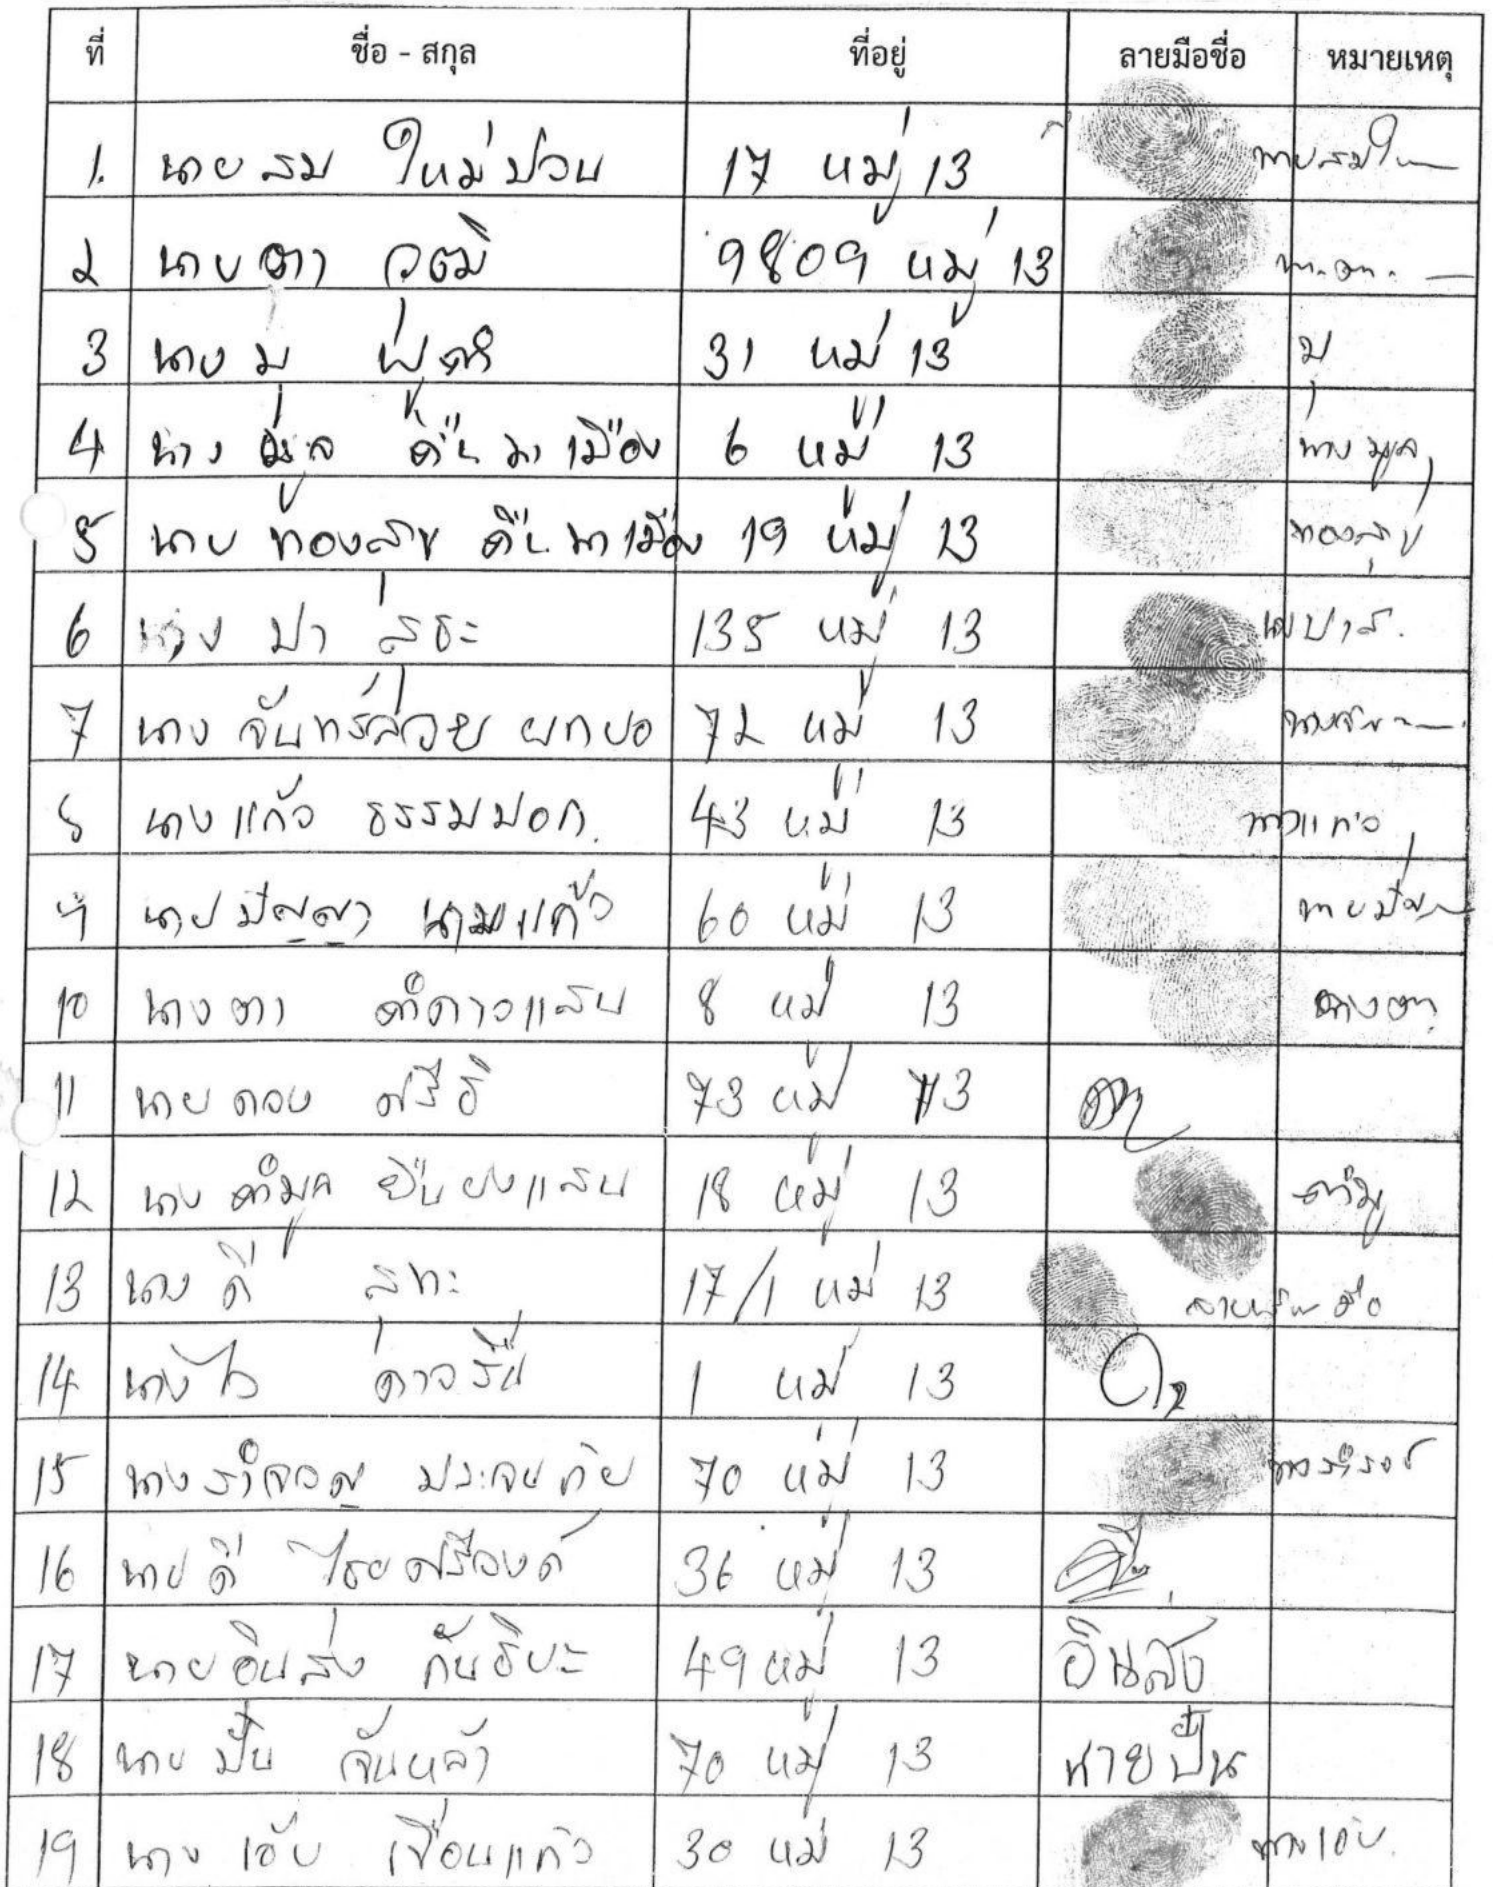 ที่ ชื่อ - สกุล ที่อยู่ ลายมือชื่อ หมายเหตุ
1. นายสม ใหม่ป่วน 17 หมู่ 13 นายสมใ
2 นายตา วุฒิ 9809 หมู่ 13
3 นาง มุ 31 หมู่ 13 มุ
4 นาง มูล คืนมาเมือง 6 หมู่ 13 นาง มูล
5 นาย ทองสุข คืนมาเมือง 19 หมู่ 13 ทองสุข
6 นาง ปา สุธะ 135 หมู่ 13
7 นาง จันทร์สวย 72 หมู่ 13 นางจัน
8 นางแก้ว ธรรมปอก. 43 หมู่ 13 นางแก้ว
9 นายปัญญา นามแก้ว 60 หมู่ 13 นายปัญ
10 นางตา คำดาวแสน 8 หมู่ 13 นางตา
11 นาย ศรีธิ 73 หมู่ 13
12 นาง คำมูล ยืนยงแสน 18 หมู่ 13 คำมู
13 นาง ดี สุทะ 17/1 หมู่ 13 ลายพิมพ์มือ
14 นาง ไว 1 หมู่ 13
15 นางรำจวญ 70 หมู่ 13
16 นายดี ไชยศรีวงค์ 36 หมู่ 13
17 นายอินสง กันธิยะ 49 หมู่ 13 อินสง
18 นาย ปั๋น จันหล้า 70 หมู่ 13 นายปั๋น
19 นาง เอ้ย เขื่อนแก้ว 30 หมู่ 13 นางเอ้ย